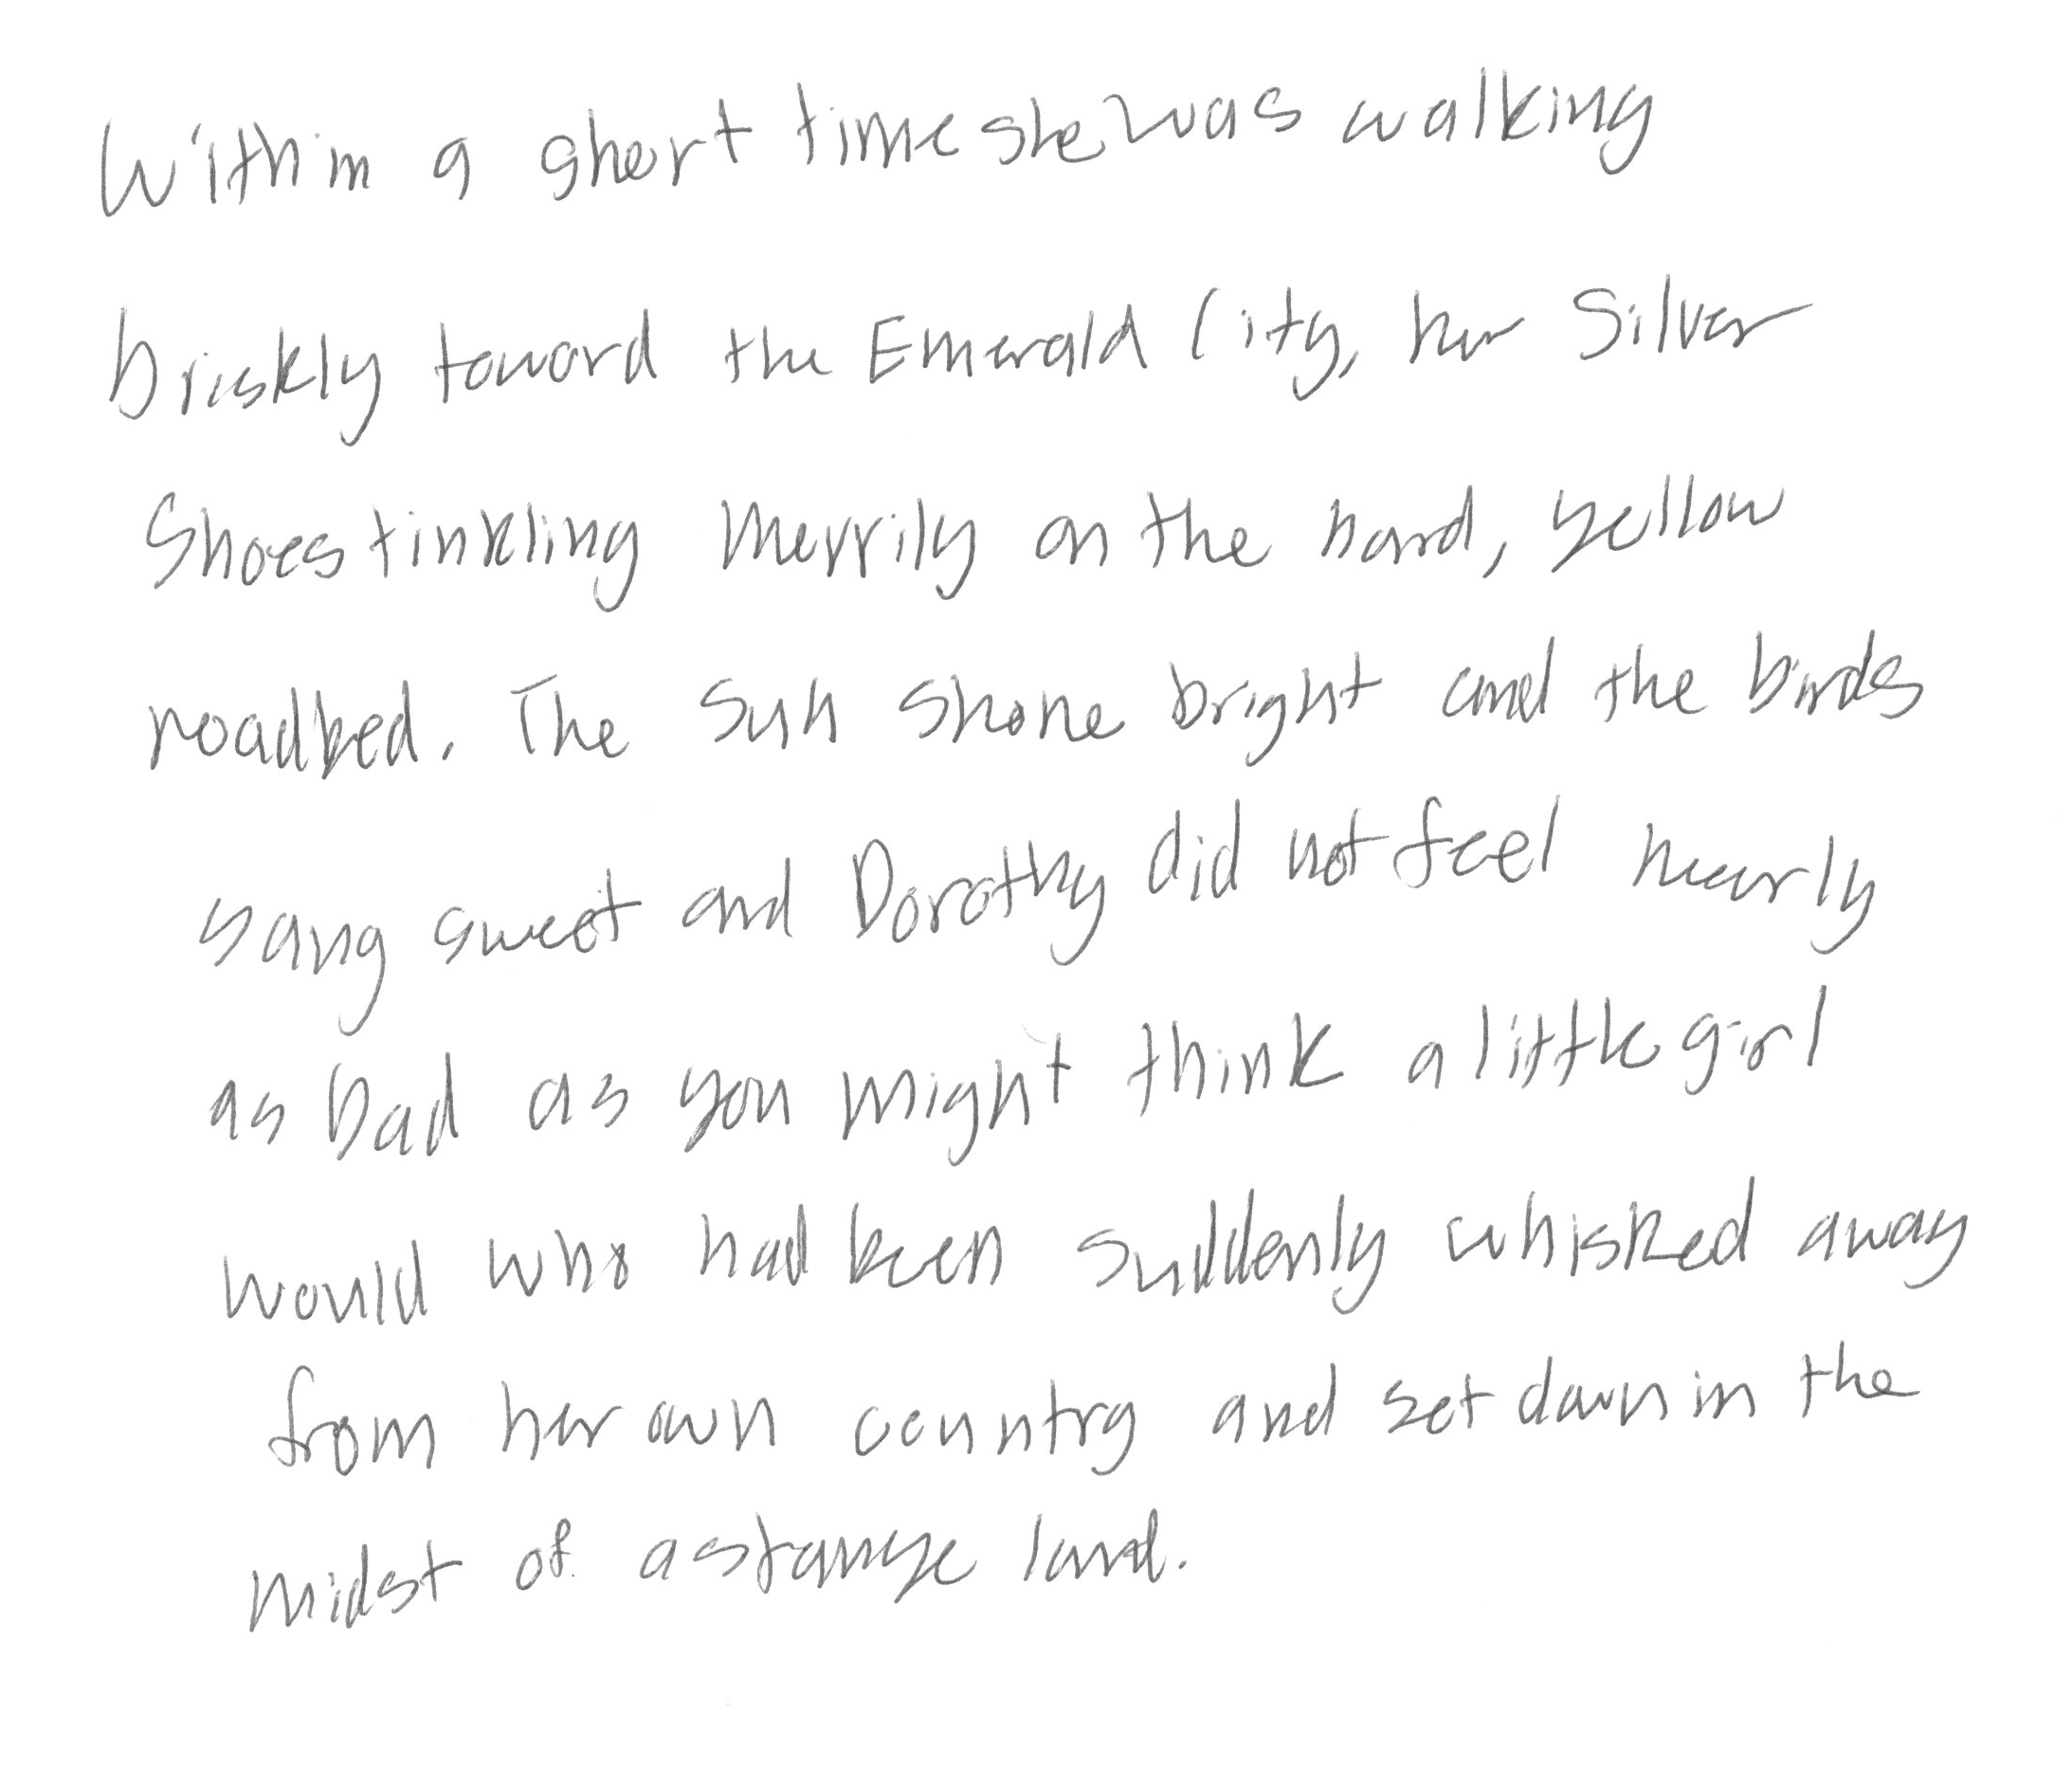 Within a short time she was walking
briskly toward the Emerald City, her Silver
Shoes tinkling merrily on the hard, yellow
roadbed. The sun shone bright and the birds
sang sweet and Dorothy did not feel nearly
as bad as you might think a little girl
would who had been suddenly whisked away
from her own country and set down in the
midst of a strange land.